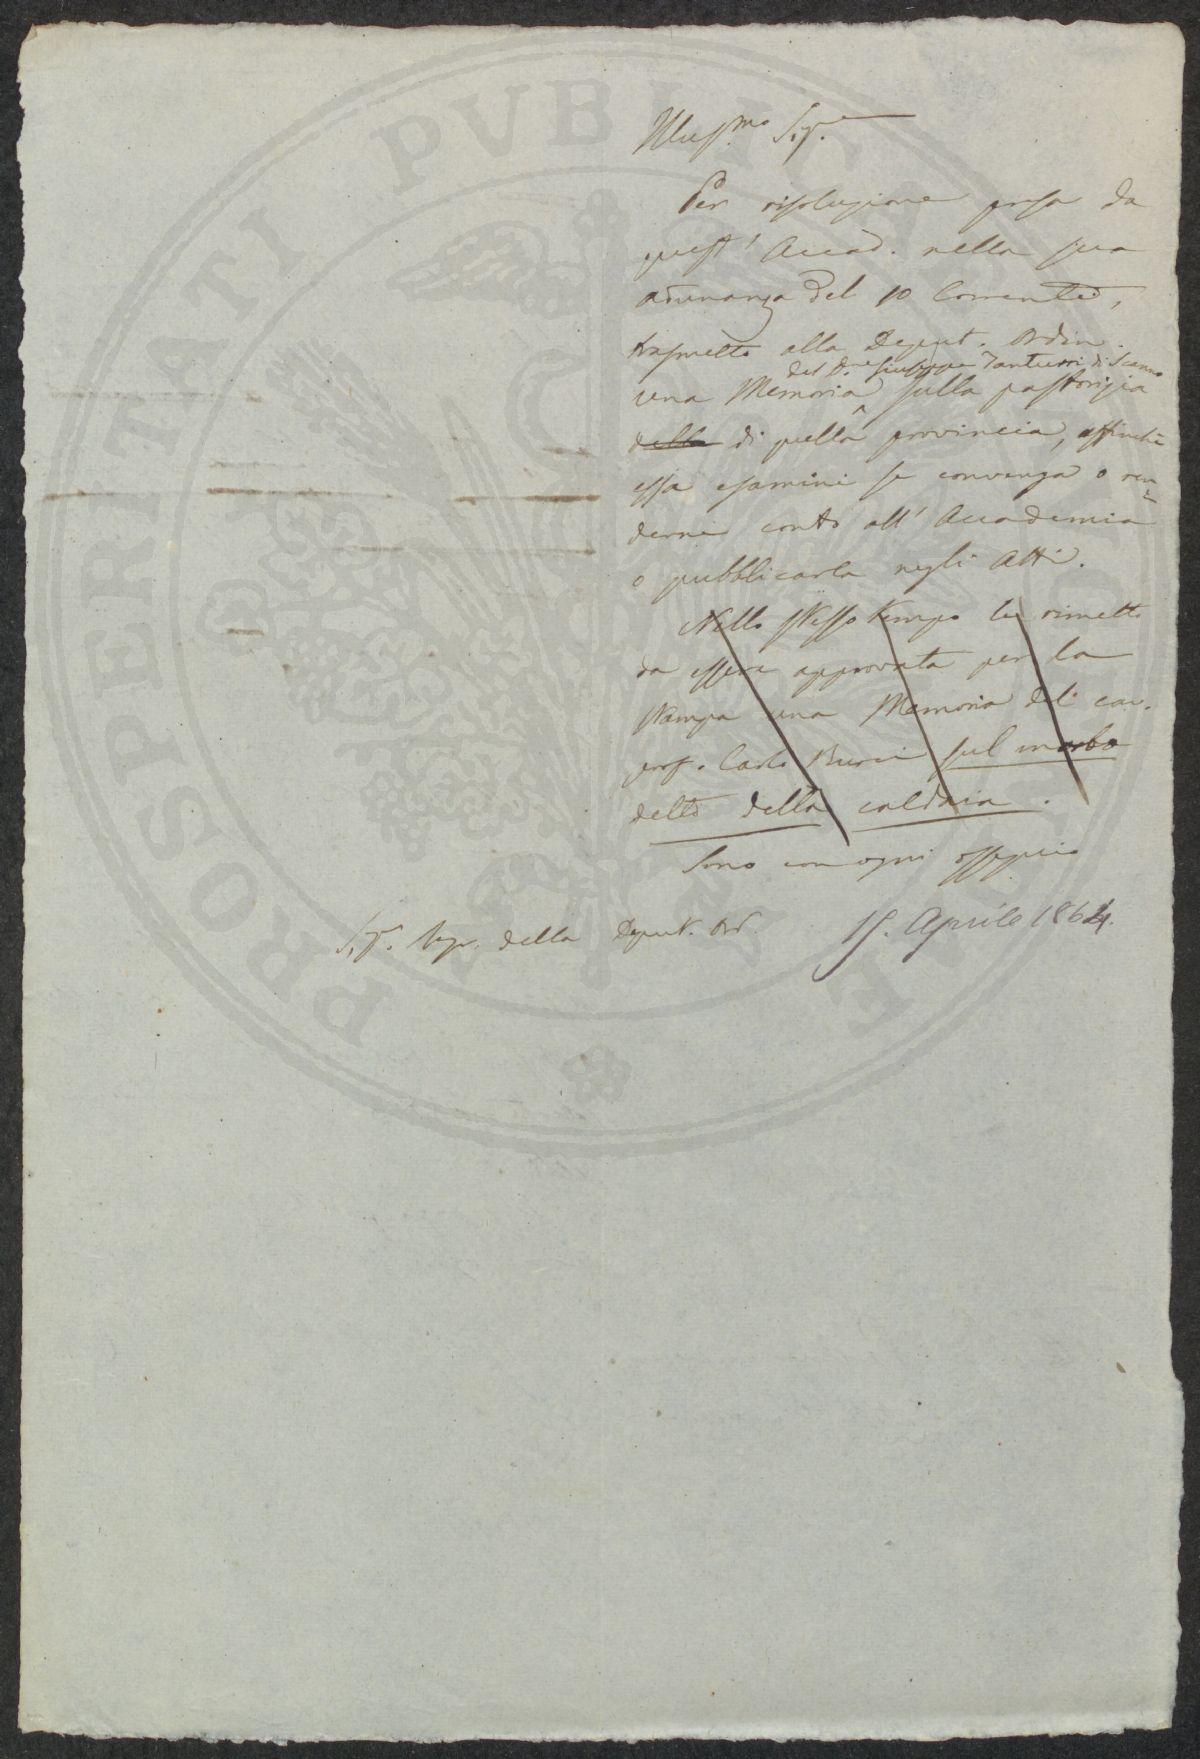 Illus.mo Sig.e
Per risoluzione presa da
quest' Accad. nella sua
adunanza del 10 Corrente,
trasmetto alla Deput. Ordin.
del D.re Giuseppe Tanturri di Scanno
una Memoria ^ sulla pastorizia
della di quella provincia, affinchè
essa esamini se convenga o ren=
derne conto all' Accademia
o pubblicarla negli Atti.
Nello stesso tempo le rimetto
da essere approvata per la
stampa una Memoria del cav.
prof. Carlo Burci sul morbo
detto della caldaia.
Sono con ogni ossequio
Sig. Segr. della Deput. Ord. 15. Aprile 1864.
PROSPERITATI PVBLICAE